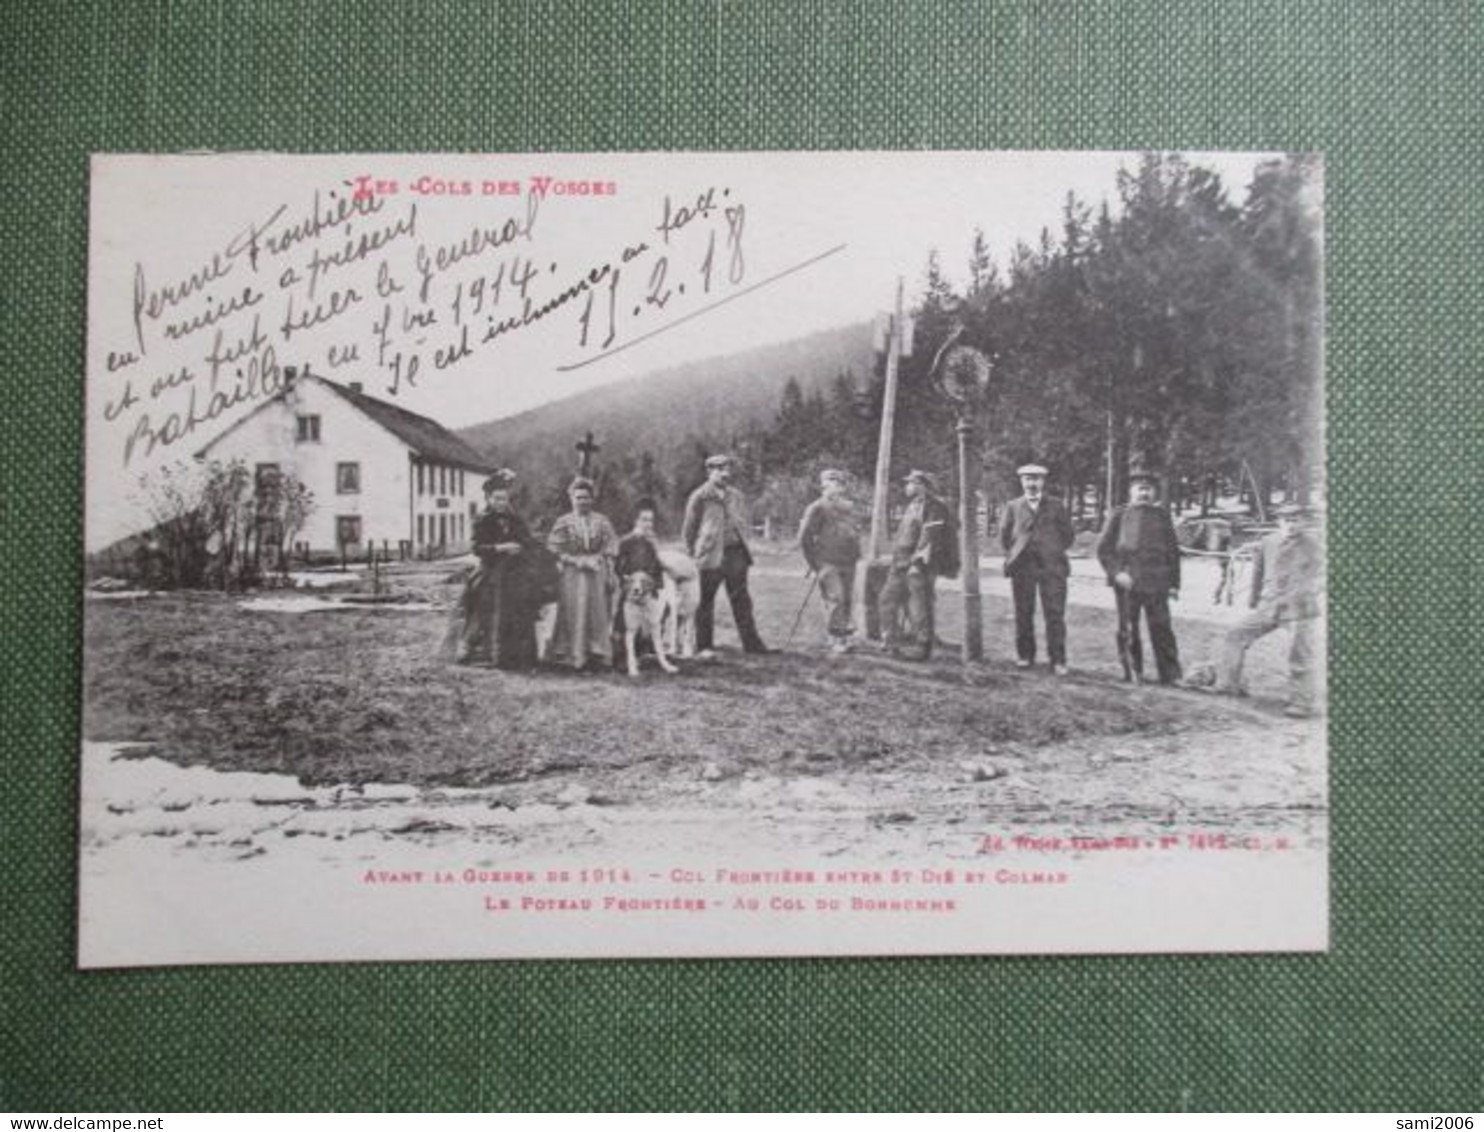 Les Cols des Vosges
ferme Frontière
en ruine à présent
et ou fut tuer le General
Bataille en 7bre 1914.
Il est inhumer en face.
15.2.18
Nº 7612
Avant la Guerre de 1914. - Col Frontière entre St Dié et Colmar
Le Poteau Frontière - Au Col du Bonhomme
sami2006